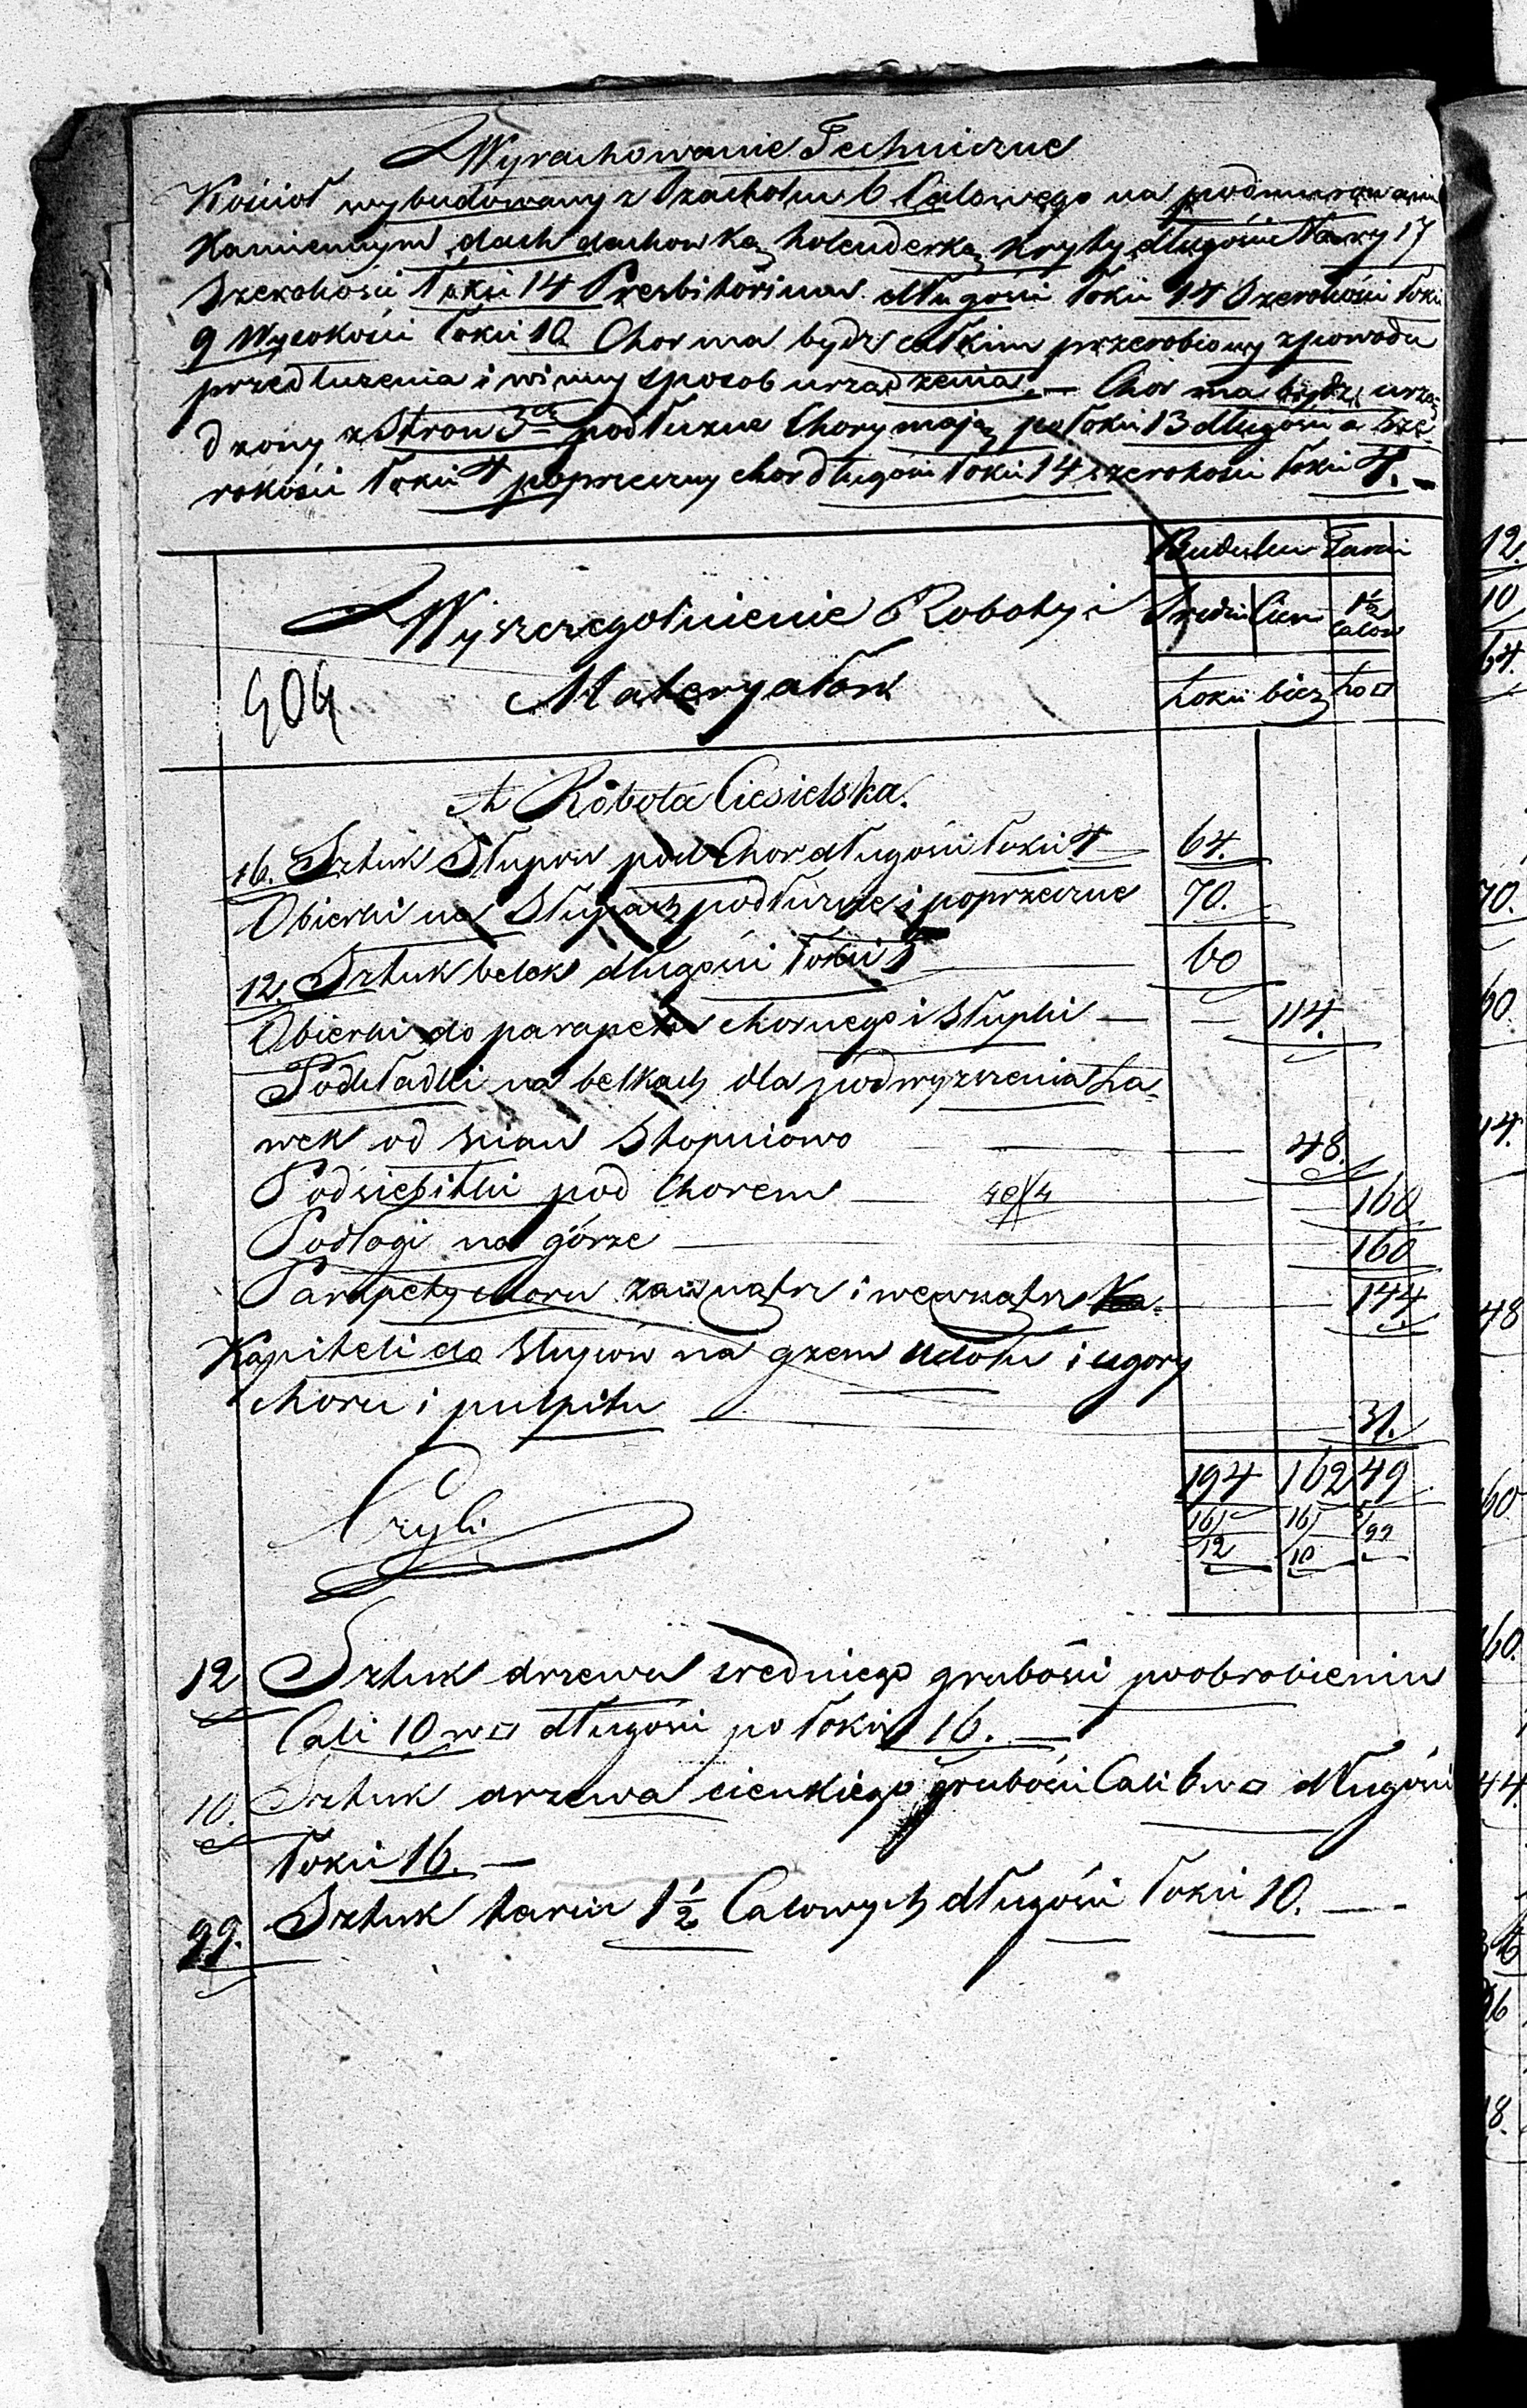 Wyrachowanie Techniczne
Kościoł wybudowany z Szacholcu 6 Calowego na podmurowaniu
Kamiennym dach dachowką holenderką kryty długości Nawy 17
Szerokości łokci 14 Presbitorium długości łokci 14 Szerokości łokci
9 Wysokości łokci 10 Chor ma bydź całkim przerobiony z powodu
przedłuzenia i w inny sposob urządzenia. — Chor ma bydź urzą
dzony z Stron 3ch podłuzne Chory mają po łokci 13 długości a Sze-
rokości łokci 4 poprzeczny chor długości łokci 14 szerokości łokci 4. —
Budulcu Tarci
Wyszczegolnienie Roboty i
Średni Cien 1½ Calow
404
Materyałow
Łokci bież Ło □
A Robota Ciesielska.
16. Sztuk Słupow pod Chor długości łokci 4 64.
Obierki na Słupach podłuzne i poprzeczne 70.
12. Sztuk belek długości łokci 5 60
Obierki do parapetu chornego i Słupki — 114.
Podkładki na belkach dla podwyzszenia Ła-
wek od scian Stopniowo 48.
Podsiebitki pod Chorem 40/4 160
Podłogi na górze 160
Parapety choru zewnatrz i wewnatrz 144
Kapiteli do Słupów na gzems udołu i ugory
choru i pulpitu 31.
194 162 49
16/ 16/ 5/99
12 10
Czyli
12 Sztuk drzewa sredniego grubości po obrobieniu
Cali 10 w □ długości po łokci 16. —
10. Sztuk drzewa cienkiego grubości Cali 6 w □ długości
łokci 16. —
99. Sztuk tarcic 1½ Calowych długości łokci 10. —